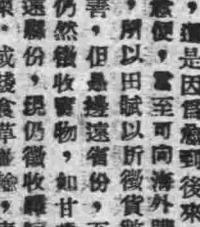 是因爲感到後來
便，甚至可向海外購
，所以田賦以折徵貨
善，但是邊遠省份，
仍然徵收實物，如甘
遠縣份，現仍徵收
，或錢食草